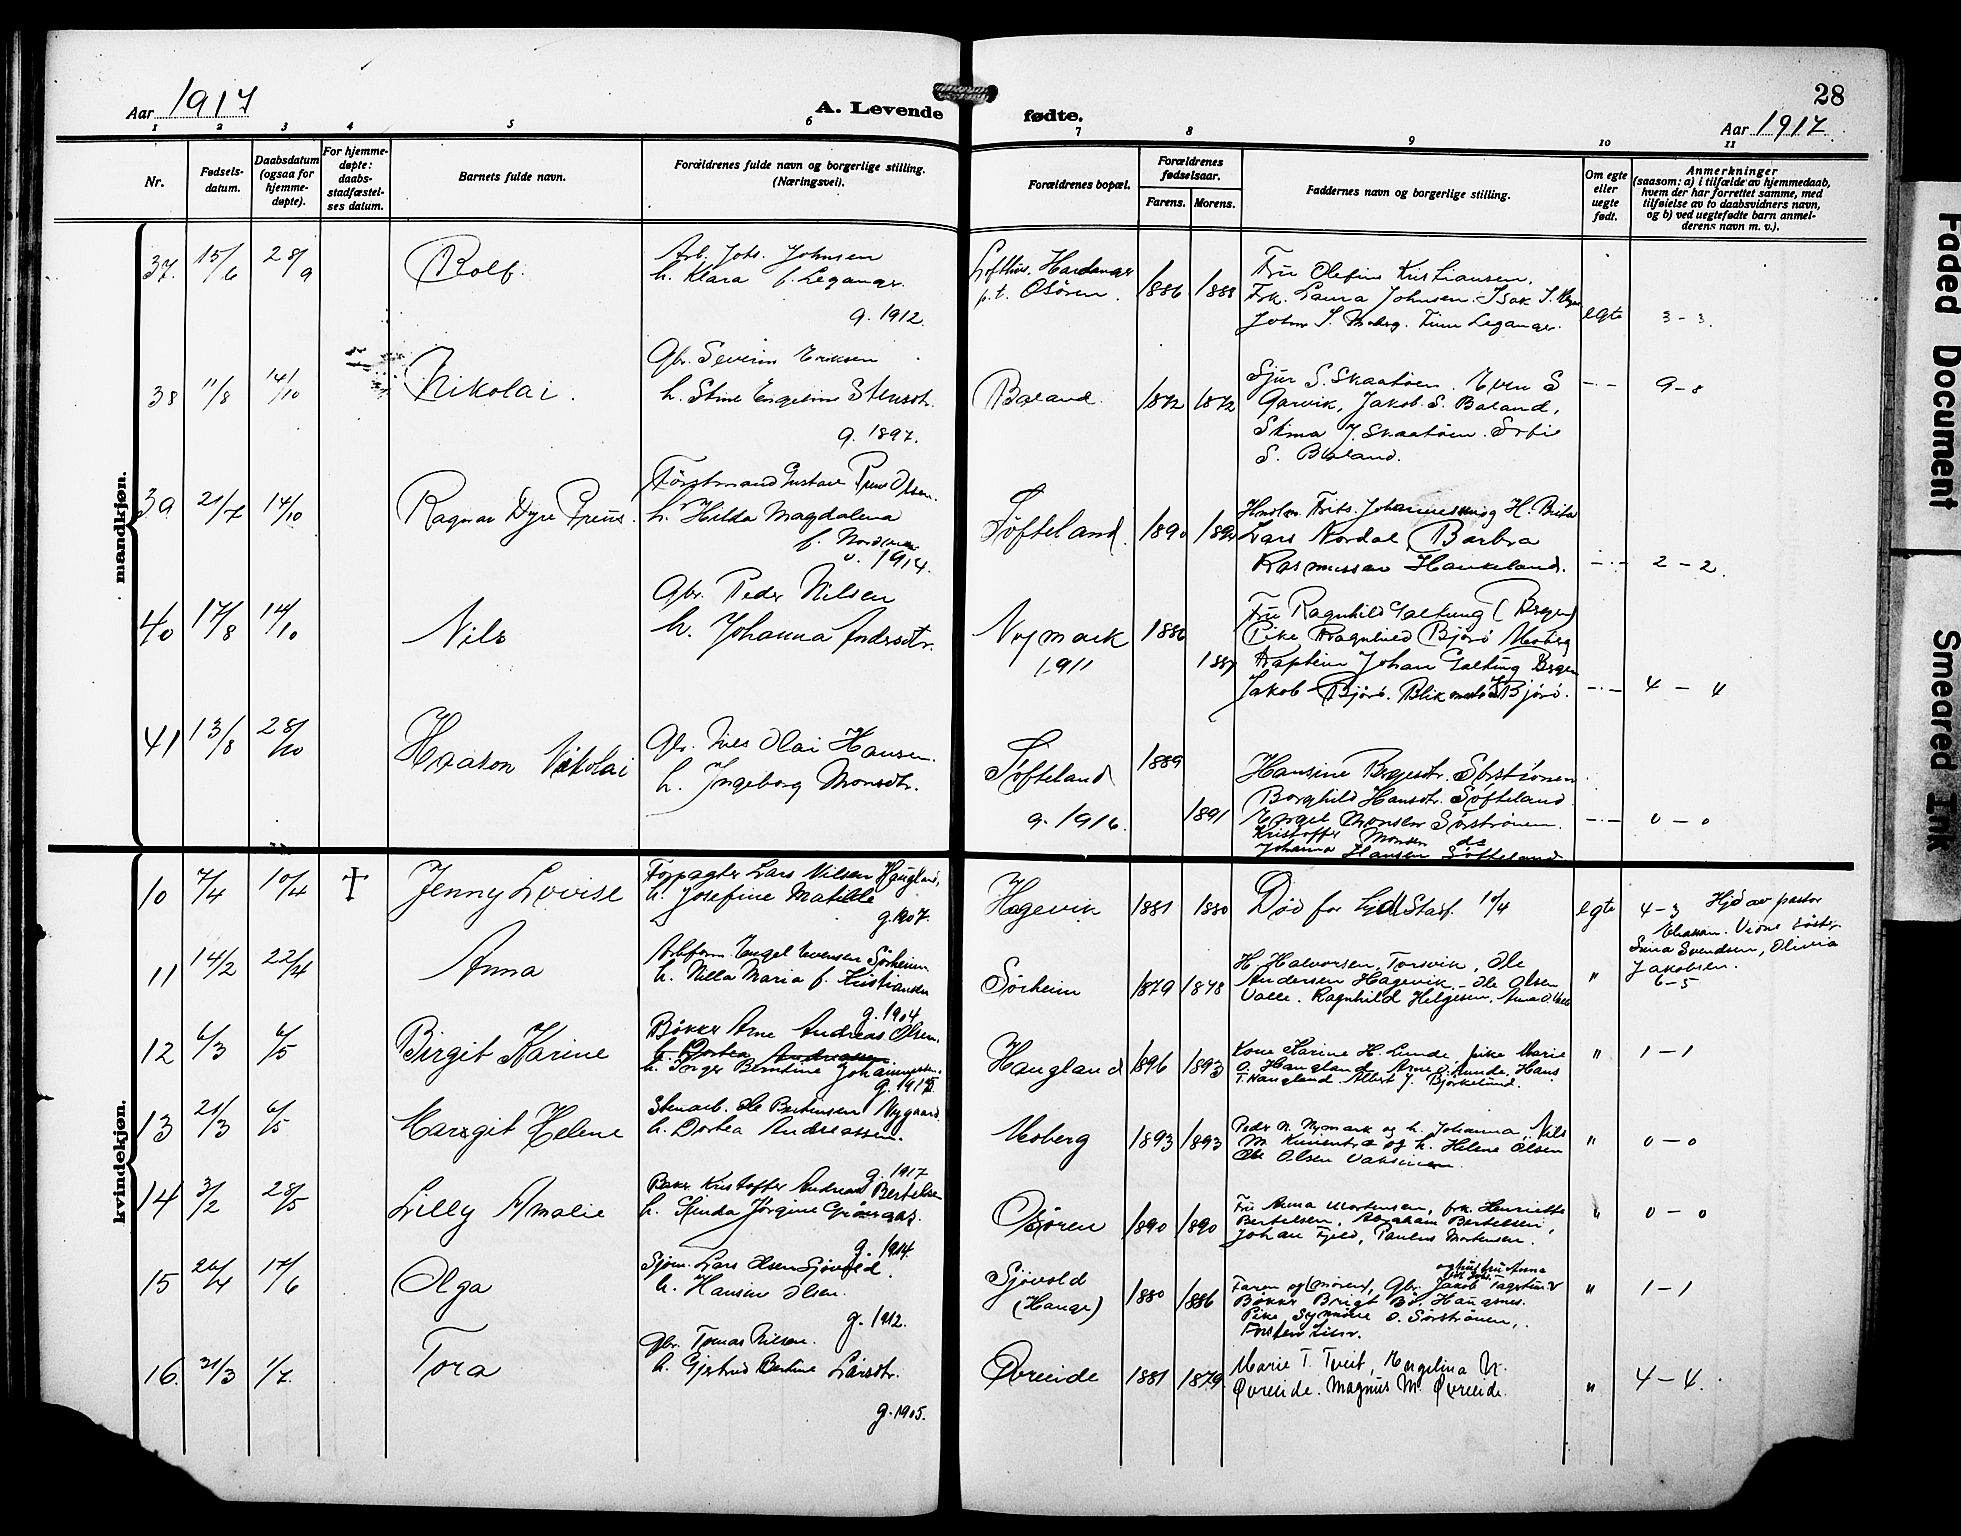 Aar 1917
A. Levende
fødte.
28
Aar 1917.
1 2 3 4 5 6 7 8 9 10 11
Nr.
Fødsels-
datum.
Daabsdatum
(ogsaa for
hjemme-
døpte).
For hjemme-
døpte:
daabs-
stadfæstel-
ses datum.
Barnets fulde navn.
Forældrenes fulde navn og borgerlige stilling.
(Næringsvei).
Forældrenes bopæl.
Forældrenes
fødselsaar.
Farens. Morens.
Faddernes navn og borgerlige stilling.
Om egte
eller
uegte
født.
Anmerkninger
(saasom: a) i tilfælde av hjemmedaab,
hvem der har forrettet samme, med
tilføielse av to daabsvidners navn,
og b) ved uegtefødte barn anmel-
derens navn m. v.).
mandkjøn.
37. 15/6 28/9 Rolf.
Arb. Johs. Johnsen
h. Klara f. Leganger.
g. 1912.
Lofthus, Hardanger
p.t. Osøren.
1886 1888
Fru Olefine Kristiansen,
Frk. Laura Johnsen. Isak J.
John S. Moberg. Finn Leganger.
egte 3-3.
38 11/8 14/10 Nikolai.
Gbr. Severin Eriksen
h. Stine Engeline Stensdtr.
g. 1897.
Baland.
1872 1872
Sjur S. Skaatøen. Even S
Garvik, Jakob S. Baland,
Stina J. Skaatøen. Sofie
S. Baland.
-·- 9-8
39 21/7 14/10 Ragnar Dyre Preus.
Forstmand Gustav Preus Olsen.
h. Hilda Magdalena
f. Nordman
v. 1914.
Søfteland.
1890 1890
Frits Johannessen og H. Brita
Lars Nordal Barbra
Rasmussen Haukeland.
-·- 2-2.
40 17/8 14/10 Nils
Gbr. Peder Nilsen
h. Johanna Andersdtr.
Nymark
1911
1886
1887
Fru Ragnhild Galtung (Bergen)
Pike Ragnhild Bjørø Moberg
Kaptein Johan Galtung Bergen
Jakob Bjørø. Bjørø.
-·- 4-4
41 13/8 28/10 Haakon Nikolai
Gbr. Nils Olai Hansen.
h. Ingeborg Monsdtr.
Søfteland
g. 1916.
1889
1891
Hansine Børgesdtr. Sørstrønen
Borghild Hansdtr. Søfteland
Monsen Sørstrønen.
Kristoffer Monsen do
Johanna Hansen Søfteland
-·- 0-0
kvindekjøn.
10 7/4 10/4 † Jenny Lovise
Forpagter Lars Nilsen Haugland,
h. Josefine Matilde
g. 1907.
Hagevik 1881 1880
Død før Stadf. 10/4
egte 4-3 Hjd av pastor
Vidne søster
Svendsen, Olivia
Jakobsen.
11 14/2 22/4 Anna
Arbform. Engel Evensen Sørheim
h. Nella Maria f. Kristiansen
g. 1904
Sørheim 1879 1878
H. Halvorsen, Torsvik, Ole
Andersen Hagevik. Ole Olsen
Valle. Ragnhild Helgesen, Anna O. Valle
" 6-5
12 6/3 6/5 Birgit Karine
Bøkker Arne Andreas Olsen.
h. Dortea Andreassen.
h. Inger Berntine Johannessen.
g. 1917
Haugland 1896 1893
Kone Karine H. Lunde, pike Marie
O. Haugland, Arne O. Lunde, Hans
T. Haugland. Albert J. Bjørkelund.
" 1-1
13 21/3 6/5 Margit Helene
Stenarb. Ole Bertinsen Nygaard
h. Dortea Andreassen.
g. 1917
Moberg 1893 1893
Peder N. Nymark og h. Johanna, Nils
M. og h. Helene Olsen
Ole Olsen
" 0-0
14 3/2 28/5 Lilly Amalie
Baker Kristoffer Andreas Bertelsen
h. Jørgine
g. 1914.
Osøren 1890 1890
Fru Anna Mortensen, frk. Henriette
Bertelsen, Abraham Bertelsen,
Johan Fjeld, Paulus Mortensen.
" 0-0
15 26/4 17/6 Olga
Sjøm. Lars Olsen Sjøvold.
h. Hansine Olsen.
g. 1912.
Sjøvold
(Hauge)
1880 1886
Faren og (moren), Gbr. Jakob
Bøkker Brigt Bø. Haugsnes.
Pike Synnøve O. Sørstrønen,
" 1-1
16. 31/3 1/7. Tora
Gbr. Tomas Nilsen.
h. Gjertrud Bertine Larsdtr.
g. 1905.
Øvreeide 1881 1879.
Marie T. Tveit, Engelina N.
Øvreeide. Magnus M. Øvreeide.
" 4-4.
Faded Document
Smeared Ink